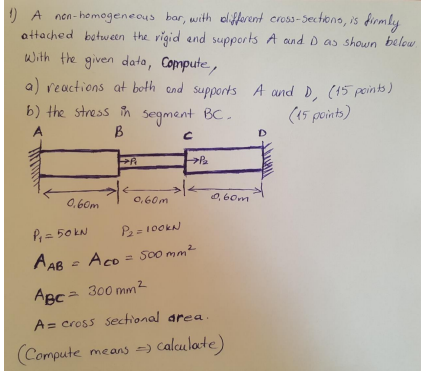 1) A non-homogeneous bar, with different cross-sections, is firmly
attached between the rigid end supports A and D as shown below
With the given data, Compute,
a) reactions at both end supports A and D, (15 points)
b) the stress in segment BC. (15 points)
A B C D
→P₁ →P₂
0,60m 0,60m 0,60m
P₁ = 50 kN P₂ = 100kN
A_AB = A_CD = 500 mm²
A_BC = 300 mm²
A = cross sectional area.
(Compute means => calculate)